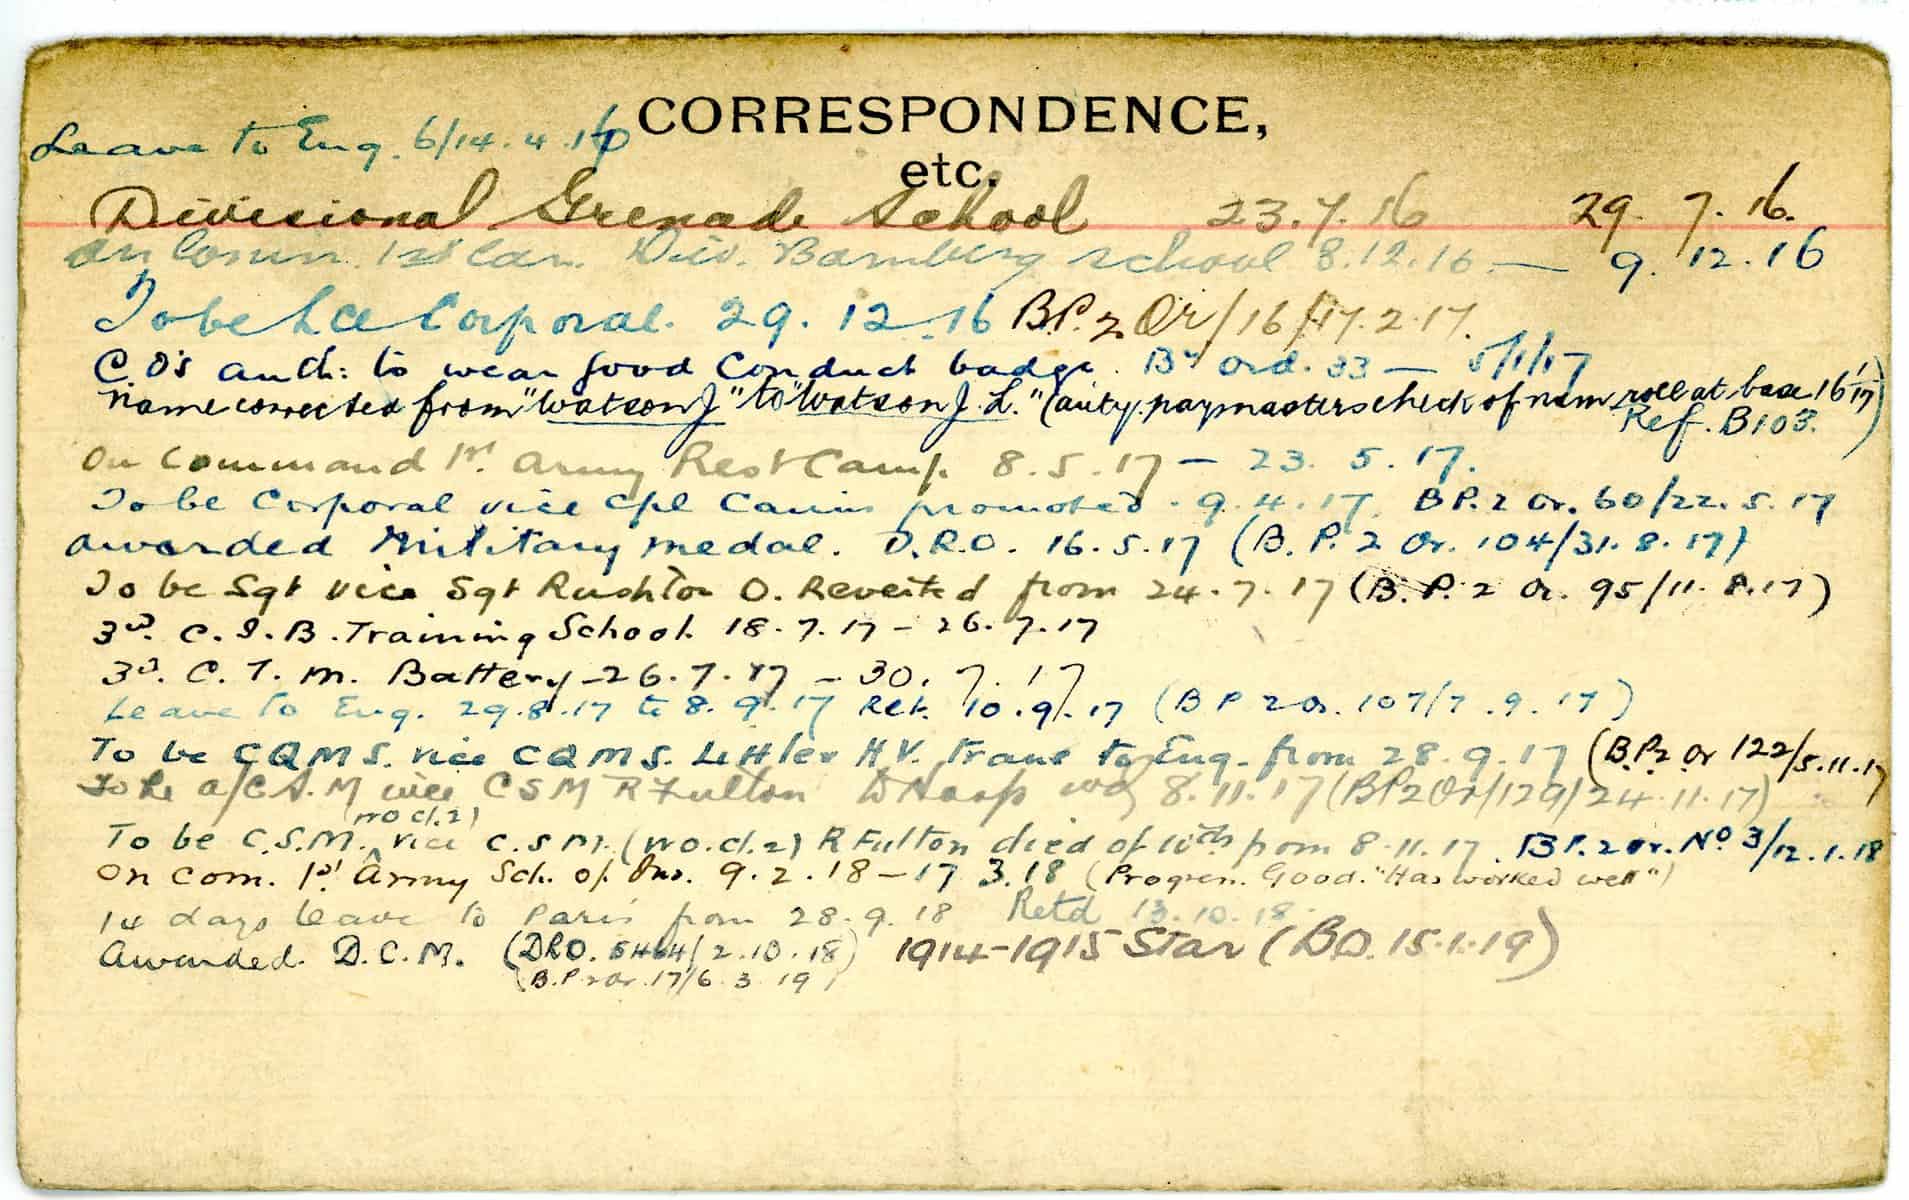 CORRESPONDENCE,
Leave to Eng. 6/14.4.16
etc.
Divisional Grenade School 23.7.16 29.7.16.
On Comm. 1st Can. Div. Bombing School 8.12.16 — 9.12.16
To be Lce Corporal. 29.12.16 B.P.2 Or/16/17.2.17.
C.O's auth: to wear good Conduct badge. Bn Ord. 33 — 5/1/17
Name corrected from "Watson J" to "Watson J. L." (auty. paymasters check of nom. roll at base 16/1/17)
Ref. B103.
On Command 1st Army Rest Camp. 8.5.17 — 23.5.17.
To be Corporal vice Cpl promoted. 9.4.17. B P.2 Or. 60/22.5.17
Awarded Military medal. D.R.O. 16.5.17 (B.P.2 Or. 104/31.8.17)
To be Sgt vice Sgt Rushton O. Reverted from 24.7.17 (B.P.2 Or. 95/11.8.17)
3rd. C.I.B. Training School. 18.7.17 – 26.7.17
3rd. C.T.M. Battery – 26.7.17 – 30.7.17
Leave to Eng. 29.8.17 to 8.9.17 Ret. 10.9.17 (B P 2 Or. 107/7.9.17)
To be CQMS. vice CQMS. Littler H.V. Trans to Eng. from 28.9.17 (B.P.2 Or 122/5.11.17
To be a/C.S.M vice CSM R Fulton to Hosp wd 8.11.17 (BP2 Or/129/24.11.17)
To be C.S.M. (WO cl.2) vice C.S.M. (WO.cl.2) R Fulton died of wds from 8.11.17. B P.2 Or. No 3/12.1.18
On Com. 1st Army Sch. of Ins. 9.2.18 – 17.3.18 (Progress. Good. "Has worked well")
14 days leave to Paris from 28.9.18 Retd 13.10.18.
Awarded D.C.M. (DRO. 5464/2.10.18) 1914–1915 Star (BO. 15.1.19)
(B.P 2 Or. 17/6.3.19)